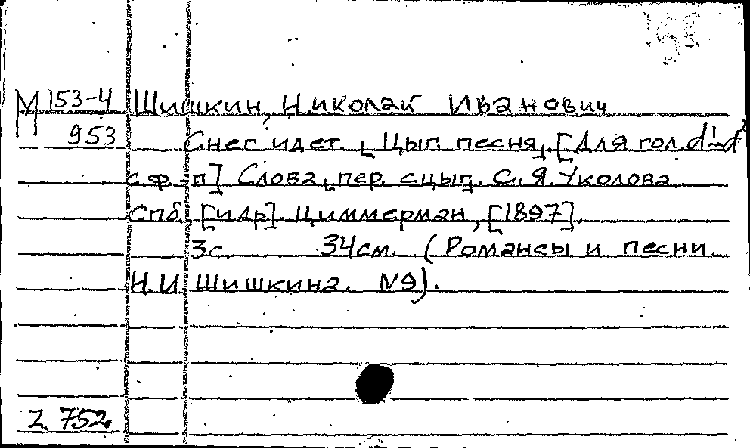 М 153-4 Шишкин, Николай Иванович
953 Снег идет. Цып. песня. [Для гол. d¹-d²
с ф-п] Слова, пер. с цып. С.Я. Уколова
Спб. [и др] Циммерман, [1897].
3с. 34см. (Романсы и песни
Н.И Шишкина. №9).
Z 752.